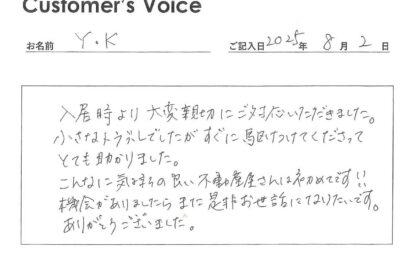 Customer's Voice
お名前 Y.K ご記入日2025年 8 月 2 日
入居時より大変親切にご対応いただきました。
小さなトラブルでしたがすぐに駆けつけてくださって
とても助かりました。
こんなに気持ちの良い不動産屋さんは初めてです!!
機会がありましたらまた是非お世話になりたいです。
ありがとうございました。